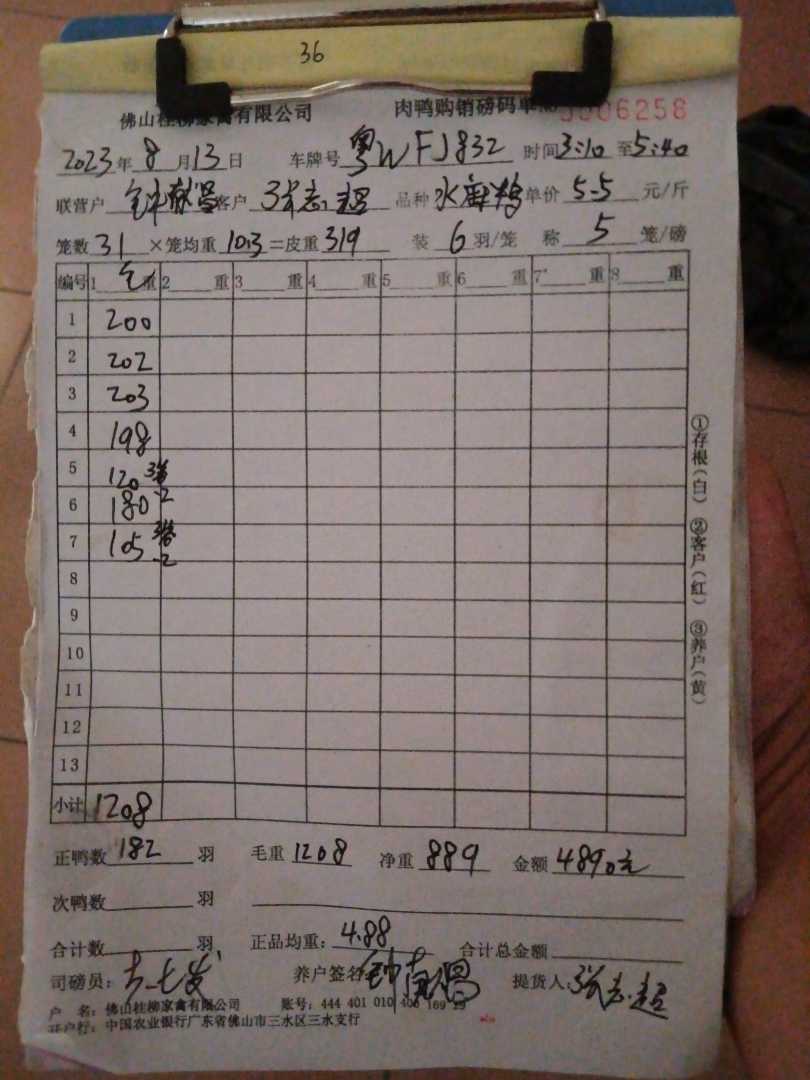 36
佛山桂柳家禽有限公司 肉鸭购销磅码单 6258
2023年8月13日 车牌号 粤WFJ832 时间3:10至5:40
联营户 客户 张志超 品种 单价5.5元/斤
笼数31×笼均重10.3=皮重319 装6羽/笼 称5笼/磅
编号 1 毛重 2 重 3 重 4 重 5 重 6 重 7 重 8 重
1 200
2 202
3 203
4 198
5 120 3笼
6 180 -2
7 105 -2
8
9
10
11
12
13
小计 1208
正鸭数182羽 毛重1208 净重889 金额4890元
次鸭数 羽
合计数 羽 正品均重:4.88 合计总金额
司磅员: 养户签名 提货人 张志超
户 名:佛山桂柳家禽有限公司 账号:444 401 010 400 169 
开户行:中国农业银行广东省佛山市三水区三水支行
①存根(白) ②客户(红) ③养户(黄)